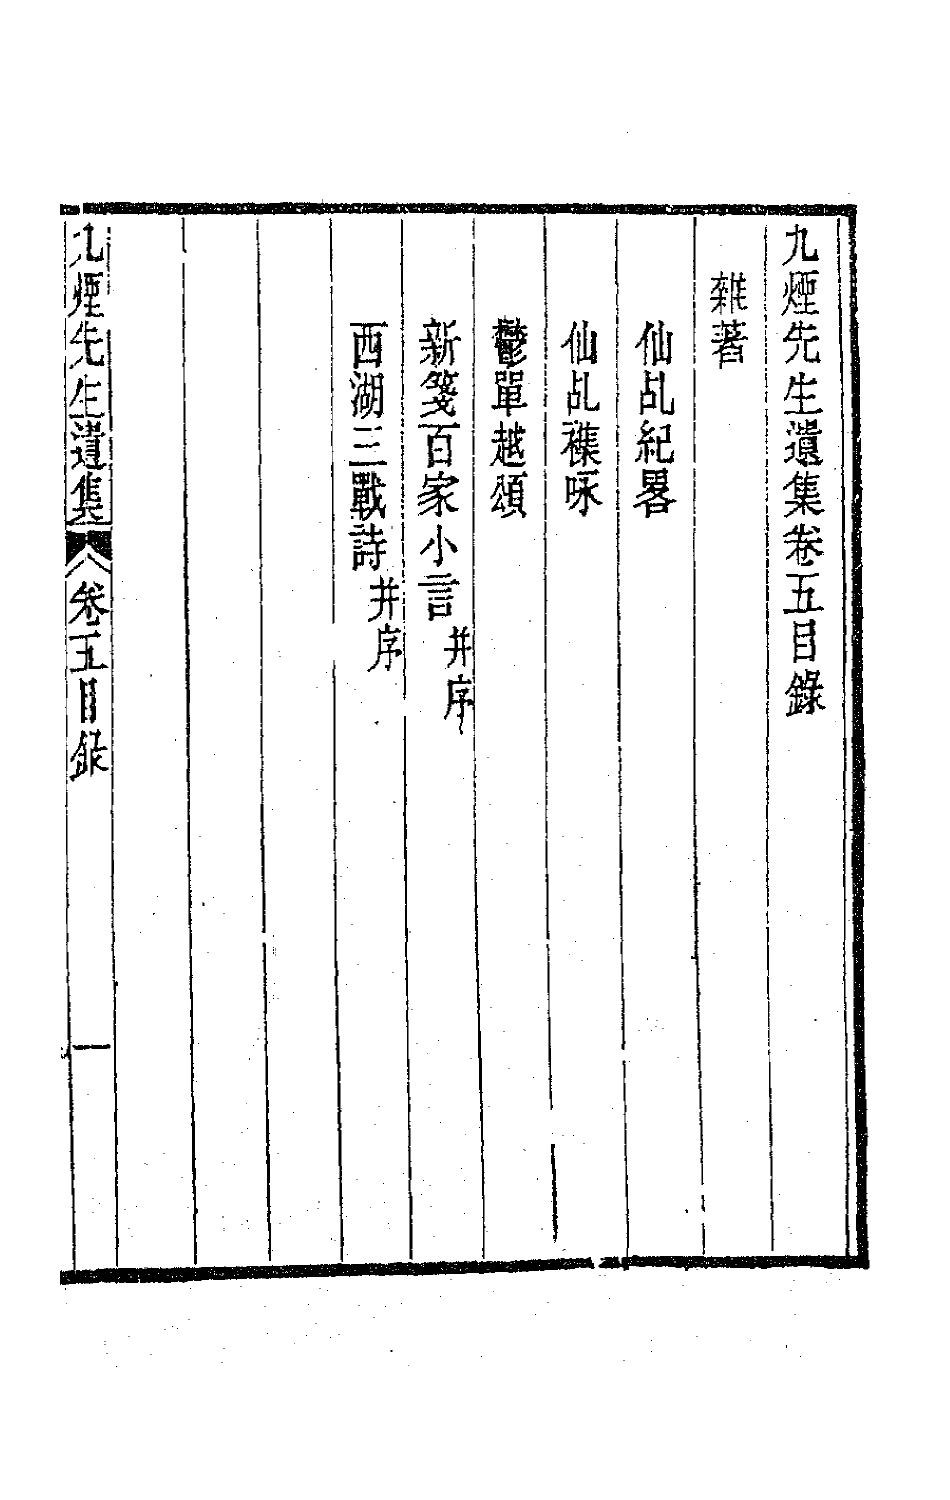 九煙先生遺集卷五目錄
雜著
仙乩紀畧
仙乩襍咏
鬱單越頌
新箋百家小言并序
西湖三戰詩并序
九煙先生遺集
卷五目錄
一